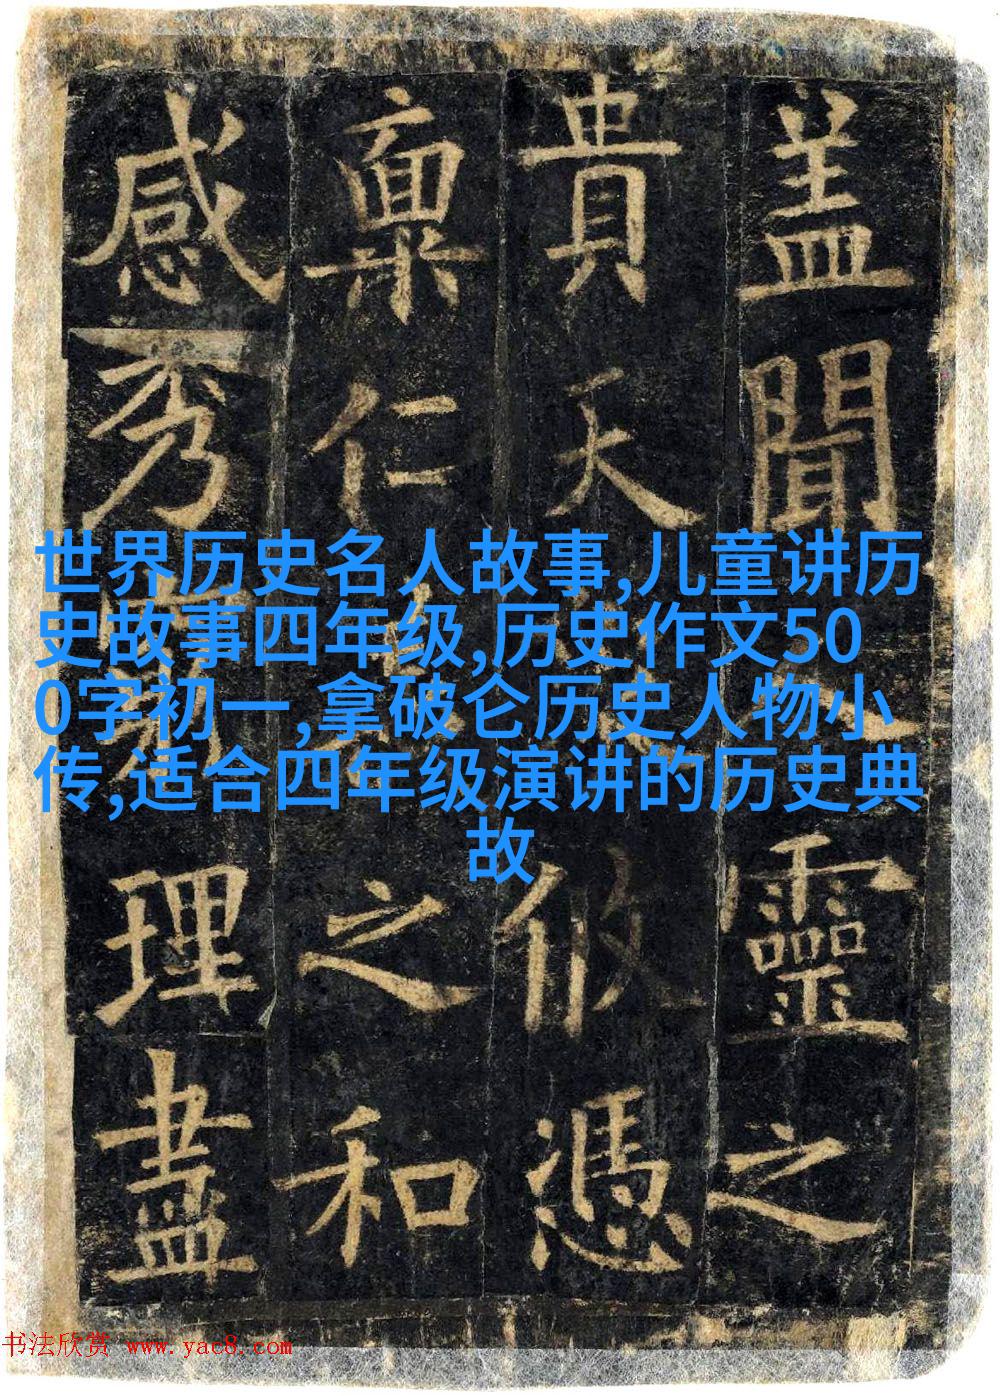 盖聞靈之
貴天攸憑
稟仁之和
感秀理盡
世界历史名人故事,儿童讲历
史故事四年级,历史作文50
0字初一,拿破仑历史人物小
传,适合四年级演讲的历史典
故
书法欣赏 www.yac8.com